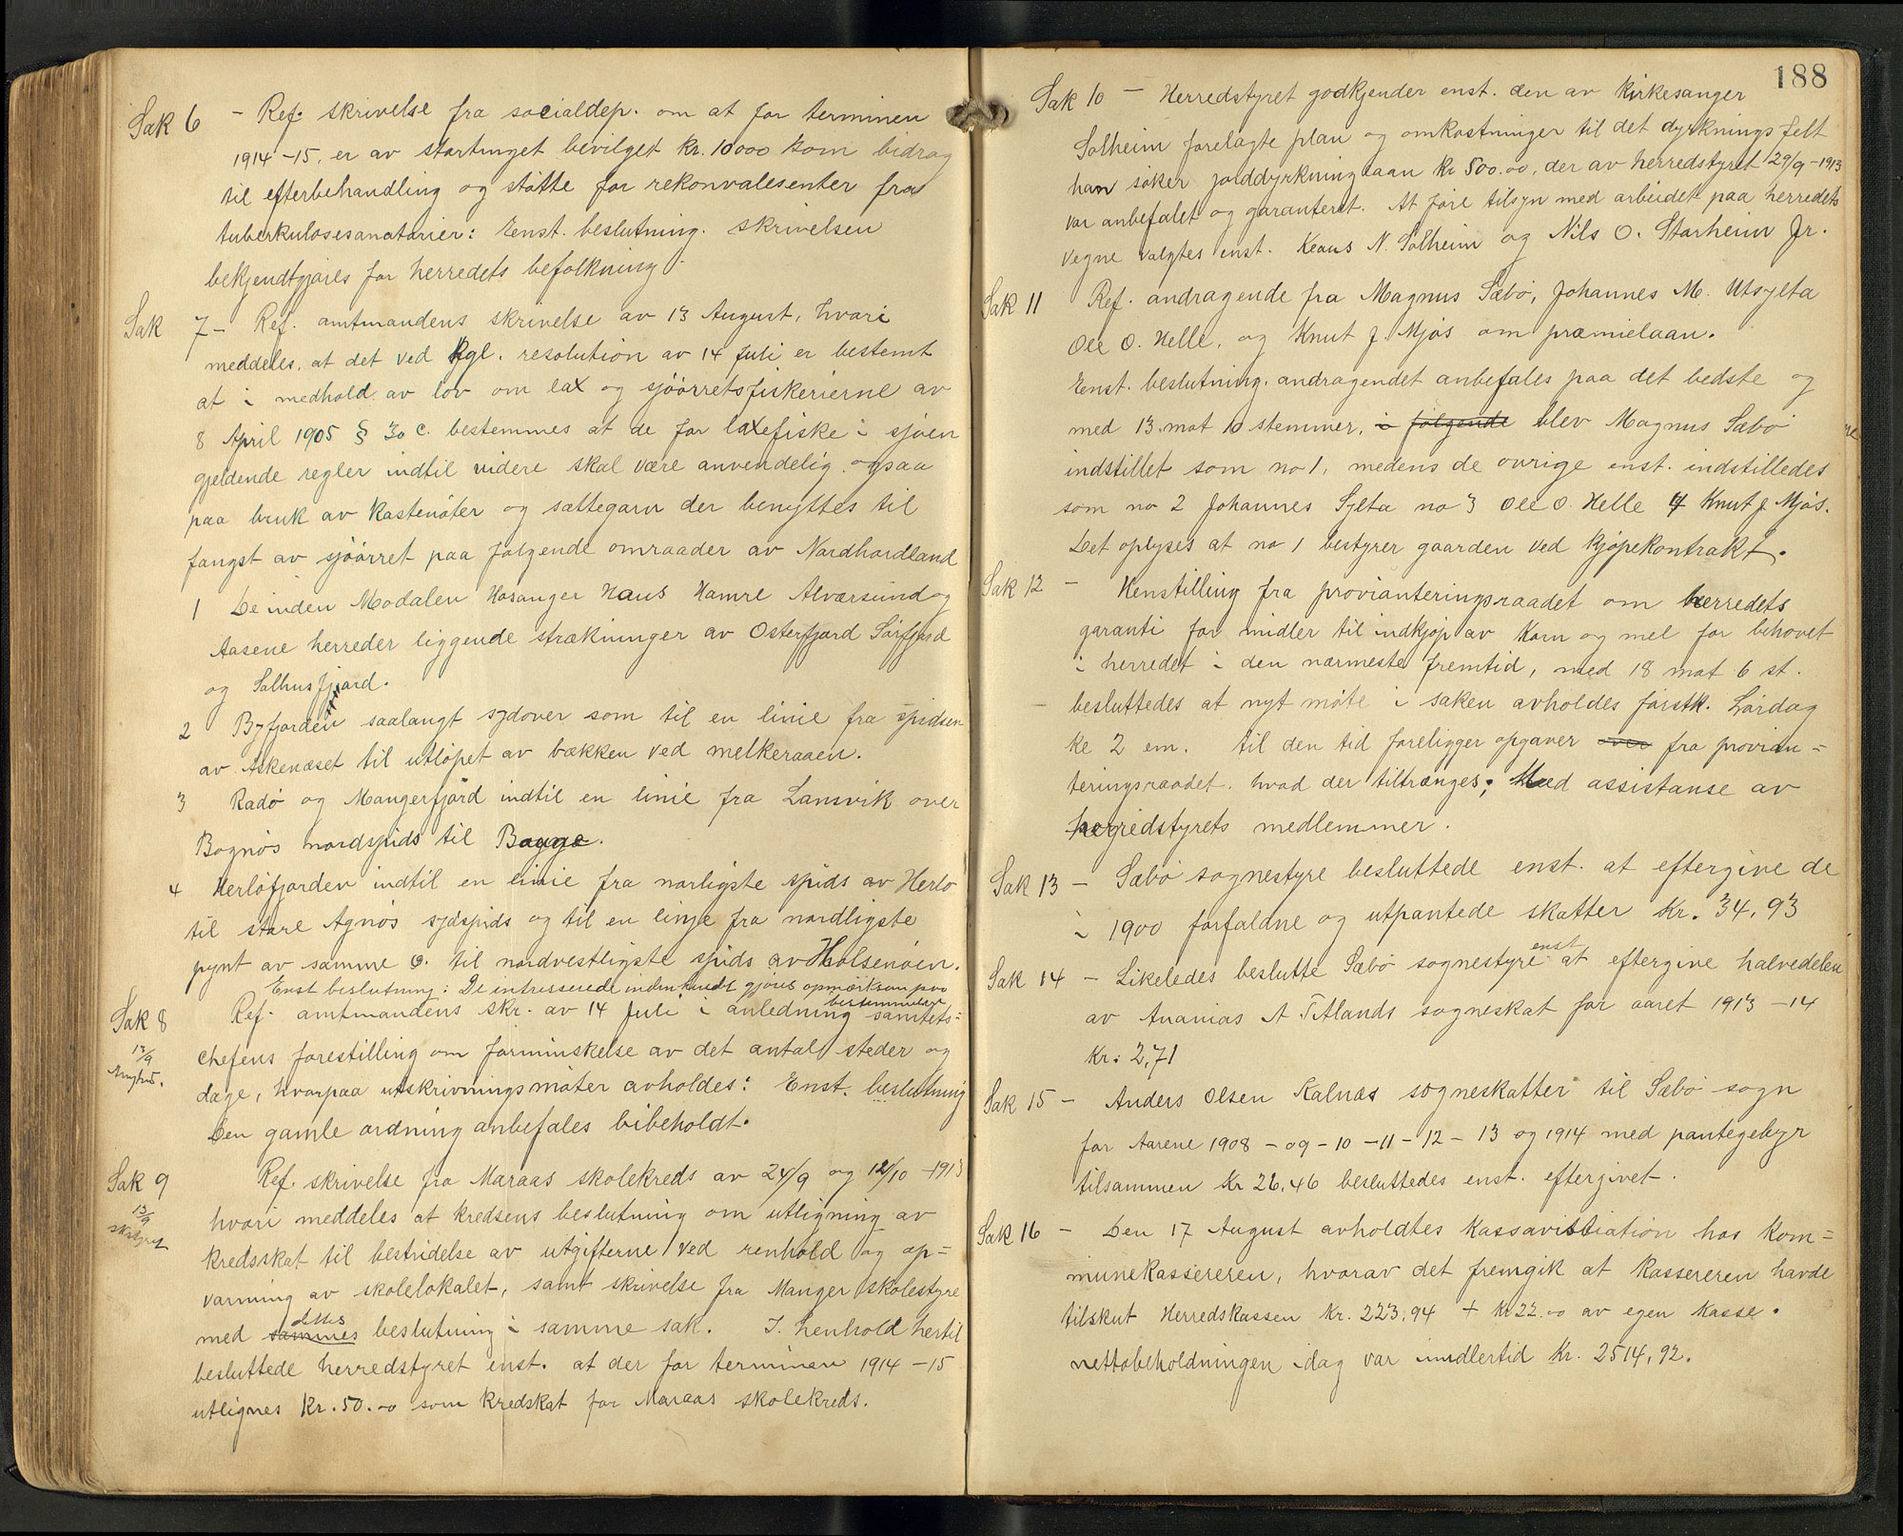 Sak 6 - Ref. skrivelse fra socialdep. om at for terminen
1914-15, er av stortinget bevilget Kr. 10000 som bidrag
til efterbehandling og støtte for rekonvalesenter fra
tuberkulosesanatorier: Enst. beslutning. Skrivelsen
bekjendtgjøres for herredets befolkning.
Sak 7- Ref. amtmandens skrivelse av 13 August, hvori
meddeles, at det ved Kgl. resolution av 14 Juli er bestemt
at i medhold av lov om lax og sjøørretsfiskerierne av
8 April 1905 § 30 c. bestemmes at de for laxefiske i sjøen
gjeldende regler indtil videre skal være anvendelig ogsaa
paa bruk av Kastenøter og sættegarn der benyttes til
fangst av sjøørret paa følgende omraader av Nordhordland
1 De inden Modalen Hosanger Haus Hamre Alværsund og
Aasene herreder liggende strækninger av Osterfjord Sørfjord
og Salhusfjord.
2 Byfjorden saalangt sydover som til en linie fra spidsen
av Askenæset til utløpet av bækken ved melkeraaen.
3 Radø og Mangerfjord indtil en linie fra Lansvik over
Bognøs nordspids til Bagge.
4 Herløfjorden indtil en linie fra nørligste spids av Herlø
til store Agnøs sydspids og til en linje fra nordligste
pynt av samme ø. til nordvestligste spids av Holsenøen.
Enst beslutning: De intresserede inden kreds gjøres opmerksom paa
bestemmelse
Sak 8 Ref. amtmandens skr. av 14 Juli i anledning samtets=
13/9
chefens forestilling om forminskelse av det antal steder og
dage, hvorpaa utskrivningsmøter avholdes: Enst. beslutning
Den gamle ordning anbefales bibeholdt.
Sak 9 Ref. skrivelse fra Maraas skolekreds av 24/9 og 12/10 -1913
13/9
skolestyret
hvori meddeles at kredsens beslutning om utligning av
kredsskat til bestridelse av utgifterne ved renhold og op=
varming av skolelokalet, samt skrivelse fra Manger skolestyre
dettes
med sammes beslutning i samme sak. I henhold hertil
besluttede herredstyret enst. at der for terminen 1914-15
utlignes Kr. 50.00 som kredskat for Maraas skolekreds.
188
Sak 10 - Herredstyret godkjender enst. den av Kirkesanger
Solheim forelagte plan og omkostninger til det dyrkningsfelt
han søker jorddyrkningslaan Kr 500.00, der av herredstyret 29/9-1913
var anbefalet og garanteret. At føre tilsyn med arbeidet paa herredets
vegne valgtes enst. Knaus N. Solheim og Nils O. Starheim Jr.
Sak 11 Ref. andragende fra Magnus Sæbø, Johannes M. Utsylta
Ole O. Helle, og Knut J Mjøs om præmielaan.
Enst. beslutning. andragendet anbefales paa det bedste og
med 13 mot 10 stemmer, i følgende blev Magnus Sæbø
indstillet som no 1, medens de øvrige enst. indstilledes
som no 2 Johannes Sylta no 3 Ole O. Helle 4 Knut J Mjøs.
Det oplyses at no 1 bestyrer gaarden ved kjøpekontrakt.
Sak 12 - Henstilling fra provianteringsraadet om herredets
garanti for midler til indkjøp av Korn og mel for behovet
i herredet i den nærmeste fremtid, med 18 mot 6 st.
besluttedes at nyt møte i saken avholdes førstk. Lørdag
kl 2 em. til den tid foreligger opgaver over fra provian=
teringsraadet. hvad der tiltrænges; Med assistanse av
herredstyrets medlemmer.
Sak 13 - Sæbø sognestyre besluttede enst. at eftergive de
i 1900 forfaldne og utpantede skatter Kr. 34,93
enst
Sak 14 - Likeledes beslutte Sæbø sognestyre at eftergive halvedelen
av Ananias A Titlands sogneskat for aaret 1913-14
Kr: 2,71
Sak 15 - Anders Olsen Kalnæs sogneskatter til Sæbø sogn
for Aarene 1908-09-10-11-12-13 og 1914 med pantegebyr
tilsammen Kr 26,46 besluttedes enst. eftergivet.
Sak 16 - Den 17 August avholdtes Kassavisitation hos Kom=
munekassereren, hvorav det fremgik at Kassereren havde
tilskut Herredskassen Kr. 223,94 + Kr 22.00 av egen Kasse.
nettobeholdningen idag var imidlertid Kr. 2514,92.